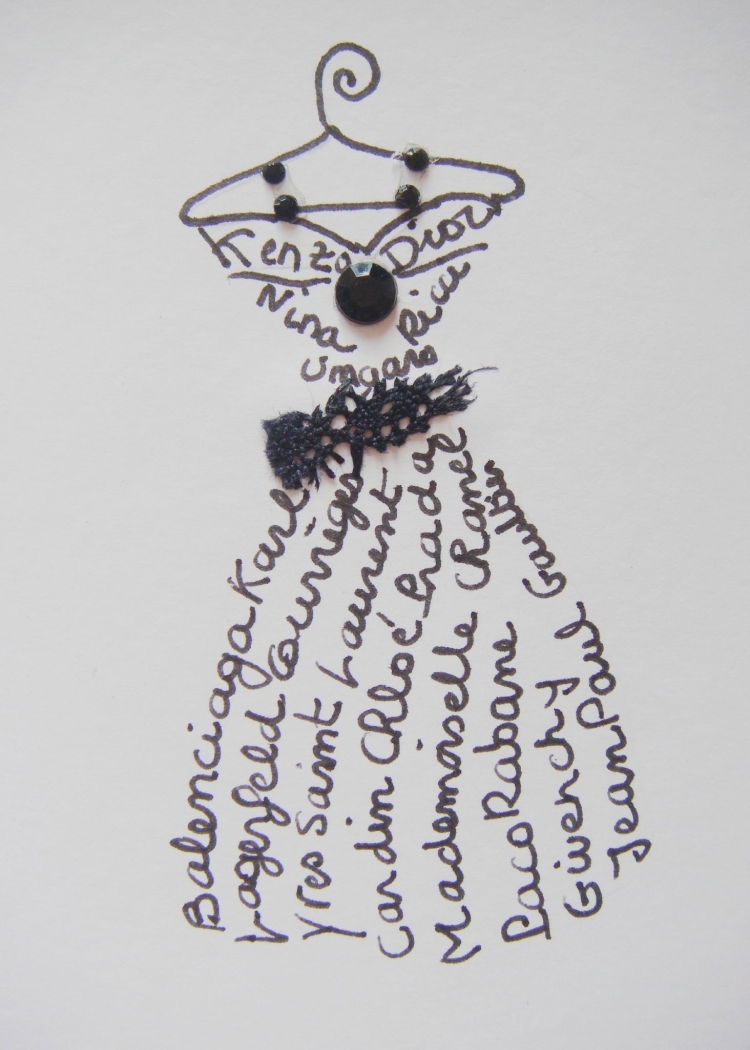 Kenzo Dior
Nina Ricci
Ungaro
Balenciaga Karl
Lagerfeld Courrèges
Yves Saint Laurent
Cardin Chloé Prada
Mademoiselle Chanel
Paco Rabane
Givenchy
Jean Paul Gaultier